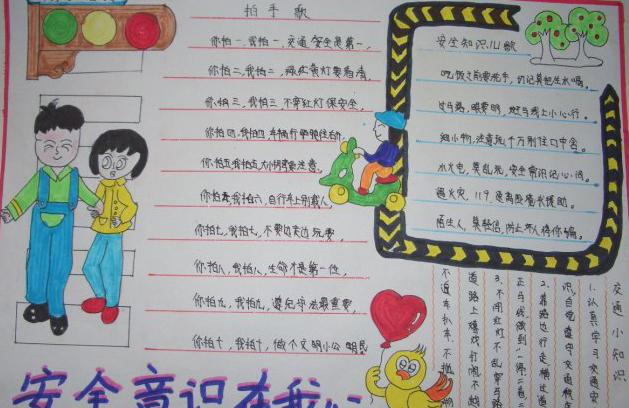 拍手歌
你拍一,我拍一,交通安全是第一,
你拍二,我拍二,
你拍三,我拍三,不穿红灯保安全,
你拍四,我拍四,车辆行驶
你拍五,我拍五,
我拍六,自行车上别载人,
你拍七,我拍七,不要边走边玩耍,
你拍八,我拍八,生命才是第一位,
你拍九,我拍九,遵纪守法最重要,
你拍十,我拍十,做个文明小公民
安全知识儿歌
吃饭之前要洗手,切记莫把生水喝。
过马路,眼要明,斑马线上小心行。
细小物,注意玩,千万别往口中含。
水火电,莫乱玩,安全常识记心间。
遇火灾,119,
陌生人,莫轻信,防止坏人
交通小知识
1.认真学习交通安
识,自觉遵守交通
2.靠路边行走横过道
马线做到一停二看三
3.不闯红灯不乱穿马路
道路上嬉戏打闹不
不追车扒车,不
安全意识在我心